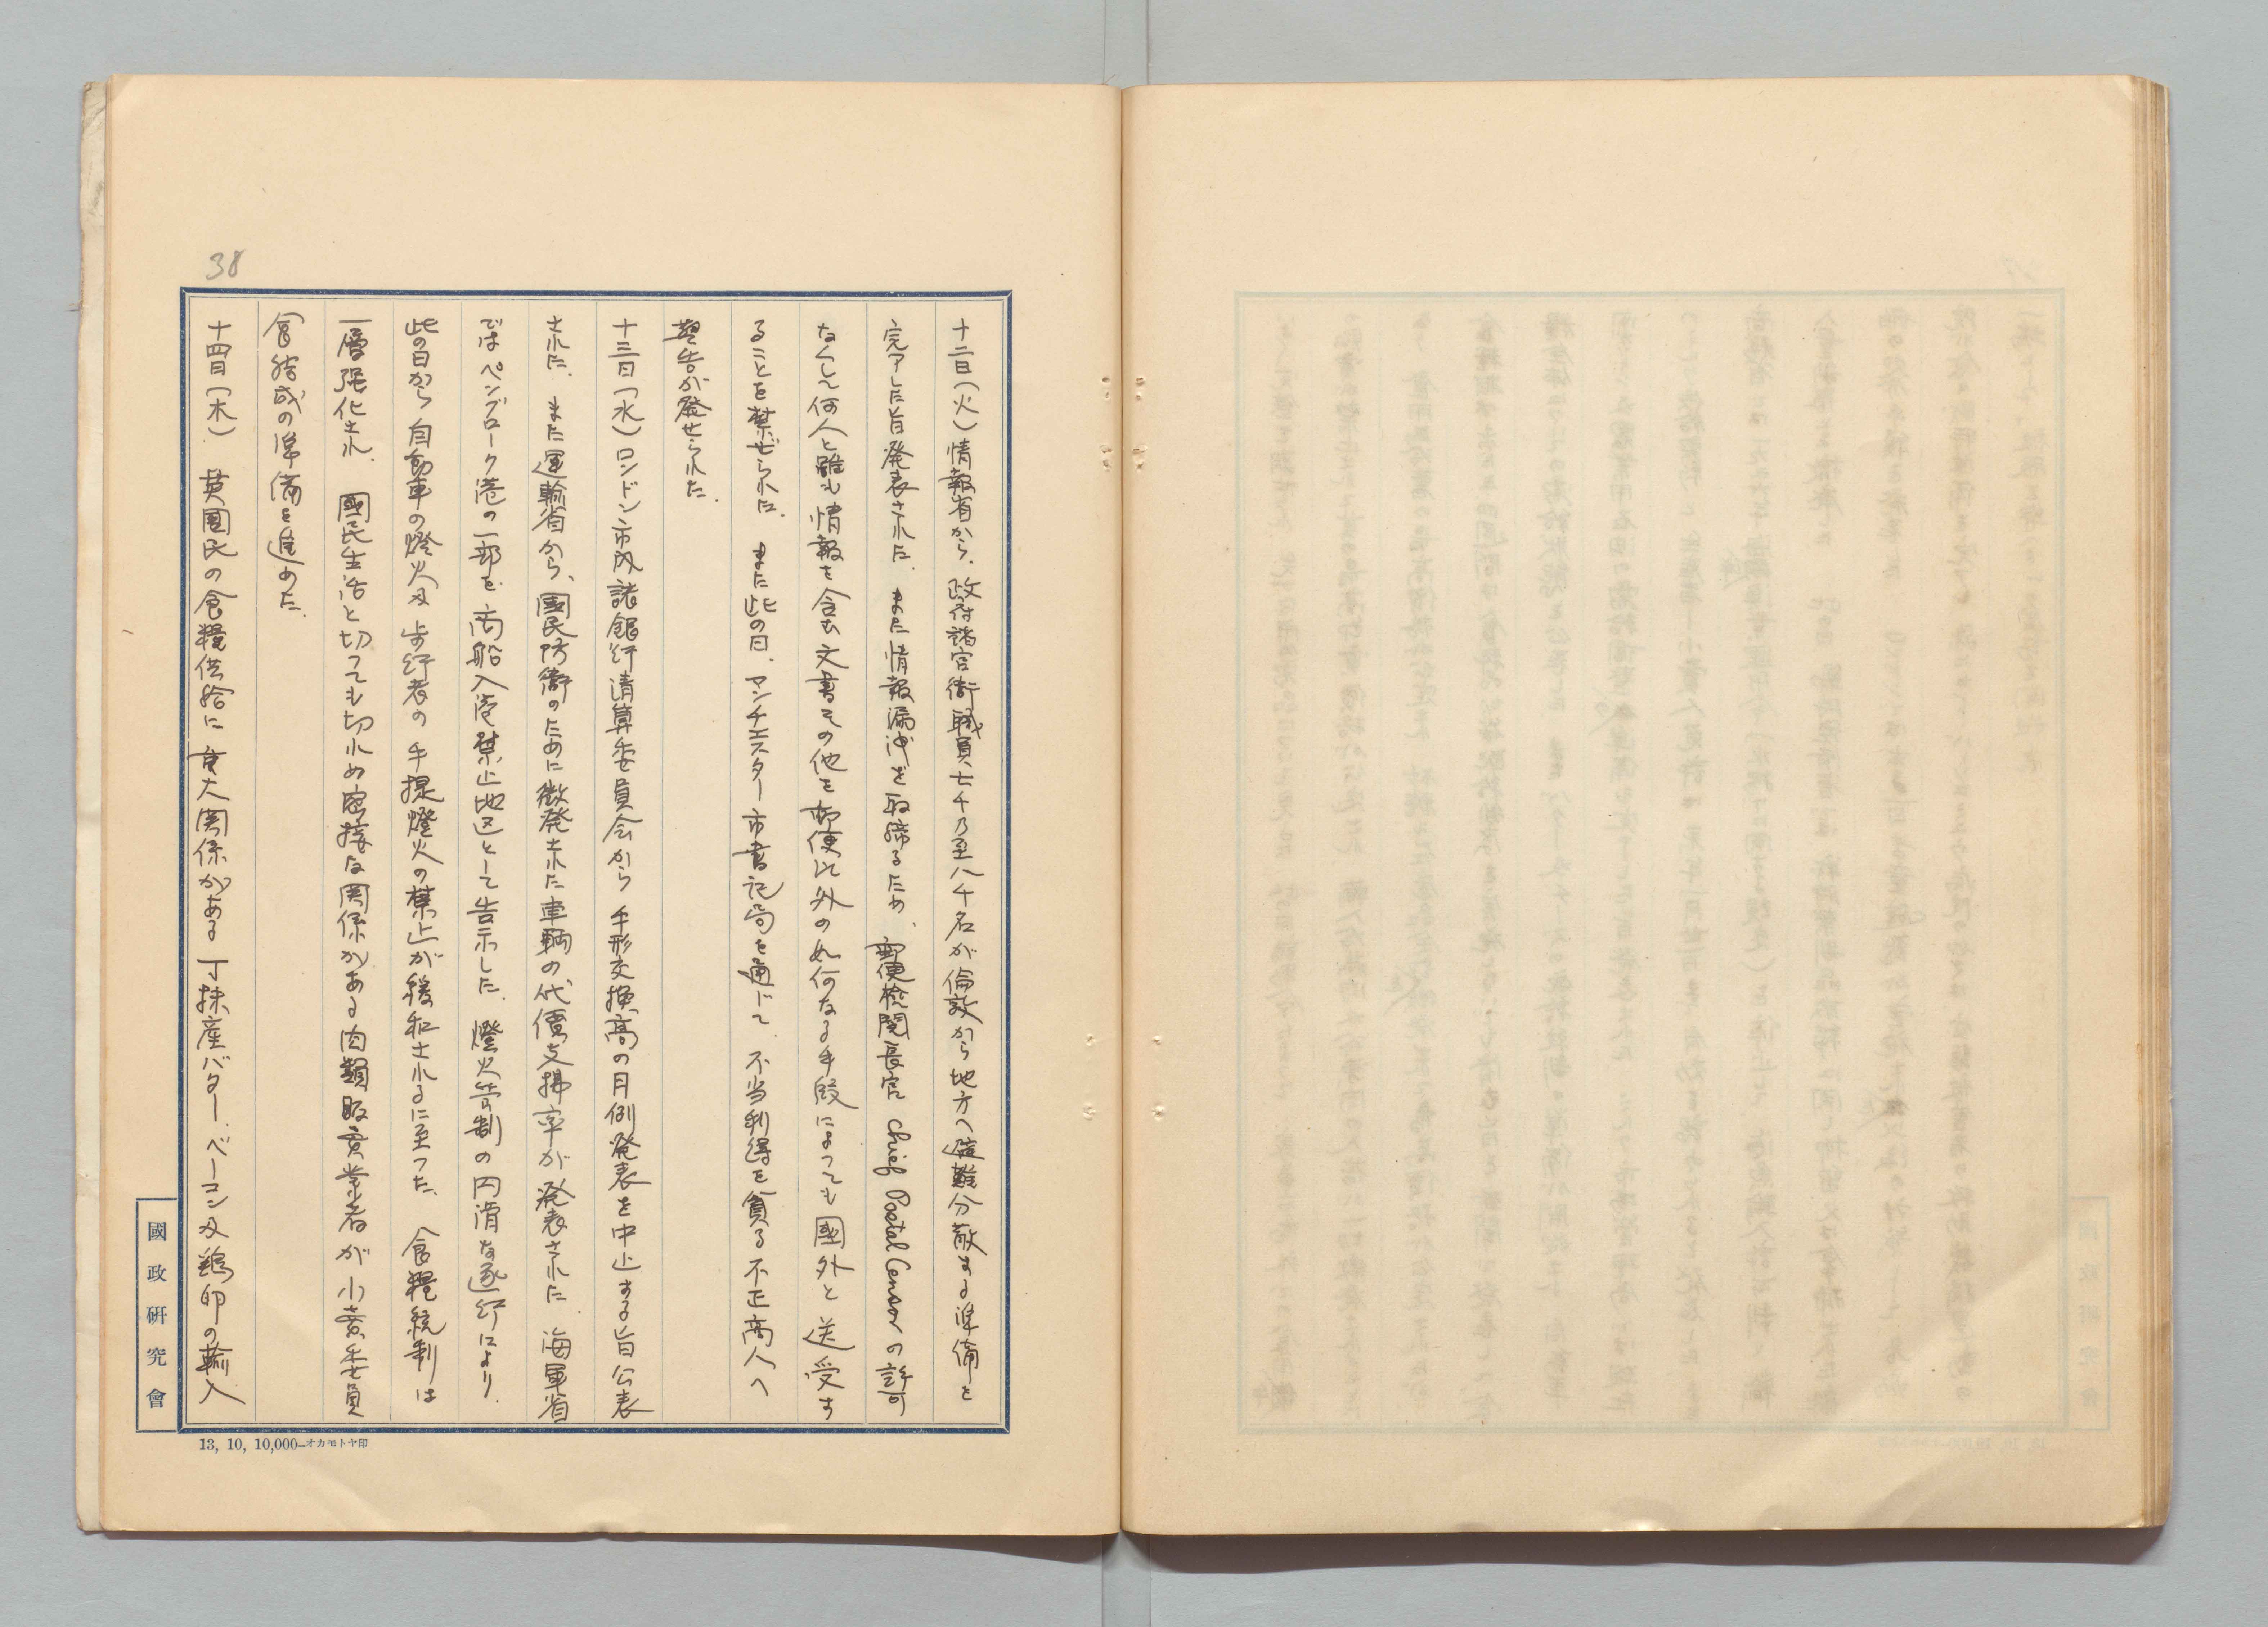 38
十二日(火)情報省から、政府諸官衙職員七千乃至八千名が倫敦から地方へ避難分散する準備を
完了した旨発表された。また情報漏洩を取締るため、郵便検閲長官 Chief Postal Censor の許可
なくして何人と雖も情報を含む文書その他を郵便以外の如何なる手段によつても國外と送受す
ることを禁ぜられた。また此の日、マンチエスター市書記局を通じて、不当利得を貪る不正商人へ
警告が発せられた。
十三日(水)ロンドン市内諸銀行清算委員会から手形交換高の月例発表を中止する旨公表
された。また運輸省から、國民防衛のために徴発された車輌の代價支拂率が発表された 海軍省
ではペンブローク港の一部を商船入港禁止地区として告示した。燈火管制の円滑な遂行により、
此の日から自動車の燈火及歩行者の手提燈火の禁止が緩和されるに至つた。食糧統制は
一層強化され、國民生活と切つても切れぬ密接な関係がある肉類販賣業者が小賣委員
會結成の準備を進めた。
十四日(木) 英國民の食糧供給に重大関係がある丁抹産バター、ベーコン及鶏卵の輸入
國政研究會
13, 10, 10,000—オカモトヤ印